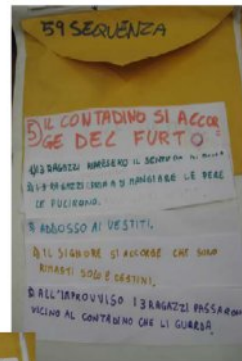 5ª SEQUENZA
5) IL CONTADINO SI ACCOR
GE DEL FURTO
I 3 RAGAZZI
I 3 RAGAZZI PRIMA DI MANGIARE LE PERE
LE PULIRONO.
ADDOSSO AI VESTITI.
IL SIGNORE SI ACCORSE CHE SONO
RIMASTI SOLO 2 CESTINI.
ALL'IMPROVVISO I 3 RAGAZZI PASSARONO
VICINO AL CONTADINO CHE LI GUARDA.